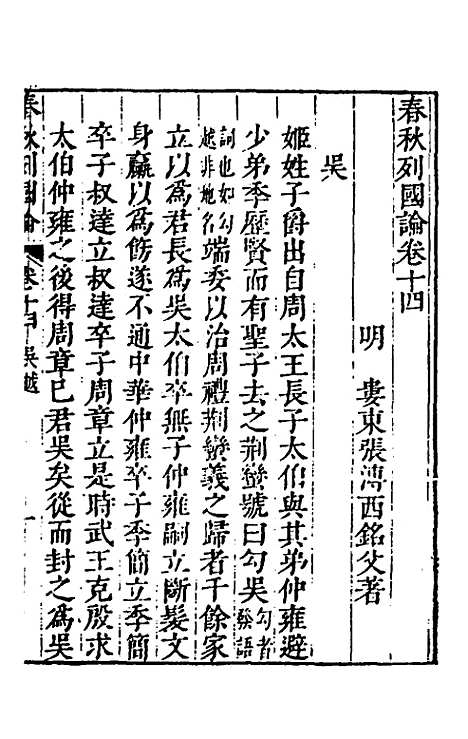 春秋列國論卷十四
明　婁東張溥西銘父著
吳
姬姓子爵出自周太王長子太伯與其弟仲雍避
少弟季歷賢而有聖子去之荆蠻號曰勾吳勾者發語
詞也如勾越非地名端委以治周禮荆蠻義之歸者千餘家
立以爲君長爲吳太伯卒無子仲雍嗣立斷髮文
身臝以爲飾遂不通中華仲雍卒子季簡立季簡
卒子叔達立叔達卒子周章立是時武王克殷求
太伯仲雍之後得周章已君吳矣從而封之爲吳
春秋列國論　卷十四　吳越　一